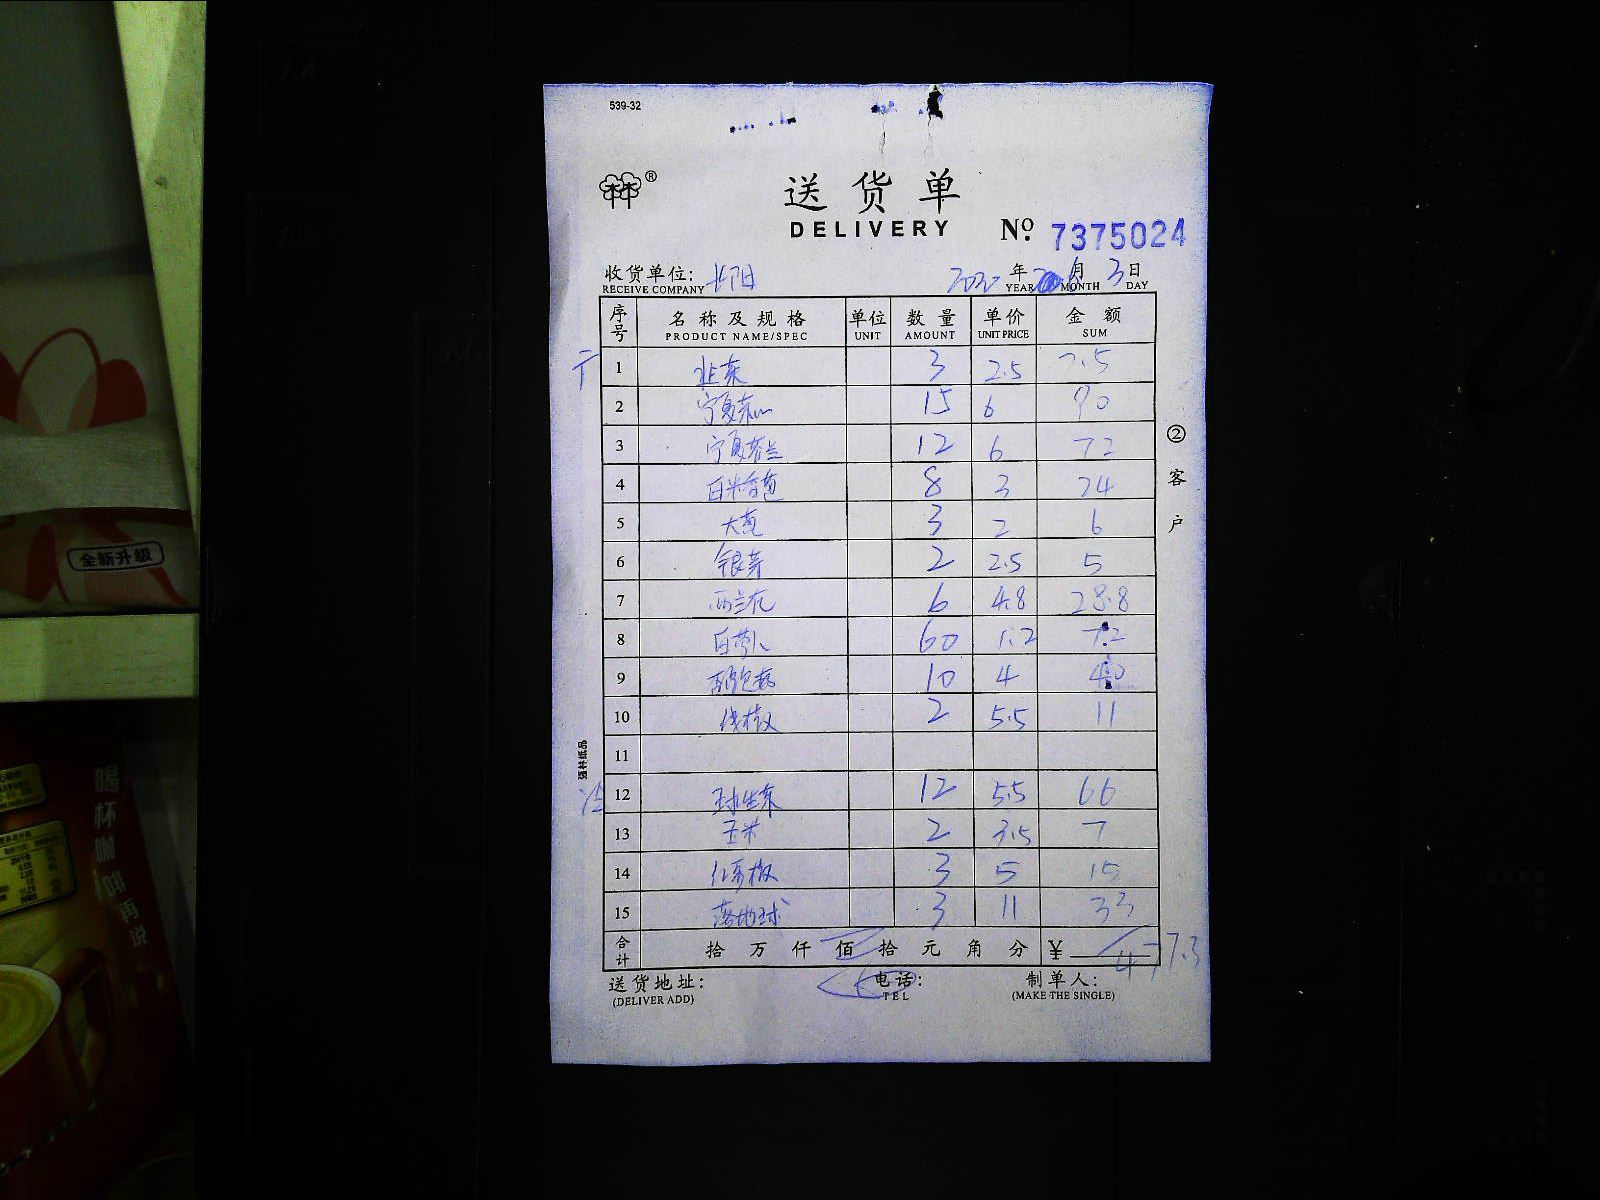 539-32
®
送货单
DELIVERY
No. 7375024
收货单位:
RECEIVE COMPANY
2020 年 6 月 3 日
YEAR MONTH DAY
序号 名称及规格 单位 数量 单价 金额
PRODUCT NAME/SPEC UNIT AMOUNT UNIT PRICE SUM
1 3 2.5 7.5
2 宁夏菜心 15 6 90
3 宁夏芥兰 12 6 72
4 8 3 24
5 大葱 3 2 6
6 银芽 2 2.5 5
7 西兰花 6 4.8 28.8
8 60 1.2 72
9 10 4 40
10 线椒 2 5.5 11
11
12 球生菜 12 5.5 66
13 玉米 2 3.5 7
14 3 5 15
15 3 11 33
合计 拾 万 仟 佰 拾 元 角 分 ¥ 477.3
送货地址: 电话: 制单人:
(DELIVER ADD) TEL (MAKE THE SINGLE)
② 客户
强林纸品
全新升級
喝杯咖啡再说